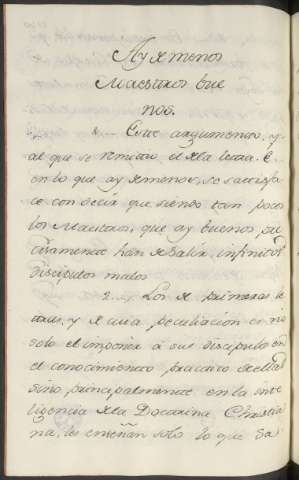 Ay de menos
Maestros bue
nos.
1. Este argumento, y
al que se remitió el de la letra E
en lo que ay de menos, se satisfa
ce con decir que siendo tan pocos
los Maestros, que ay buenos pre
cisamente han de salir infinitos
discipulos malos
2. Los de primeras le
tras, y de cuia peculiación es no
solo el imponer a sus discipulos en
el conocimiento practico de ellas
sino principalmente en la inte
ligencia de la Doctrina Christia
na, les enseñan solo lo que sa